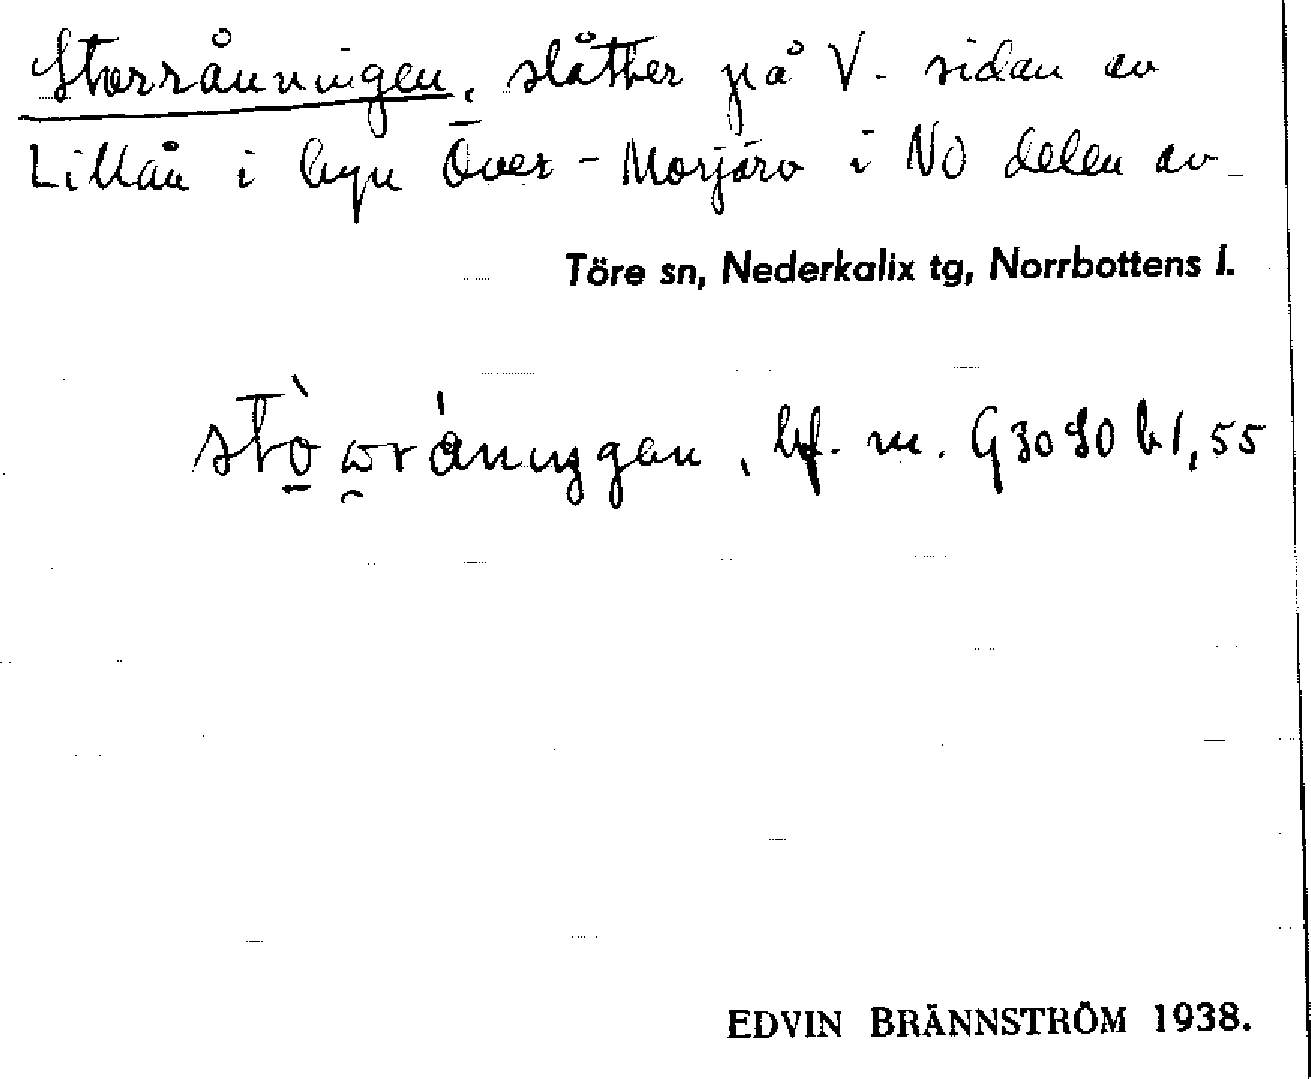 Storrånningen, slåtter på V. sidan av
Lillån i byn Över-Morjärv i NO delen av
Töre sn, Nederkalix tg, Norrbottens l.
bf. m. G 3090 b 1, 55
EDVIN BRÄNNSTRÖM 1938.